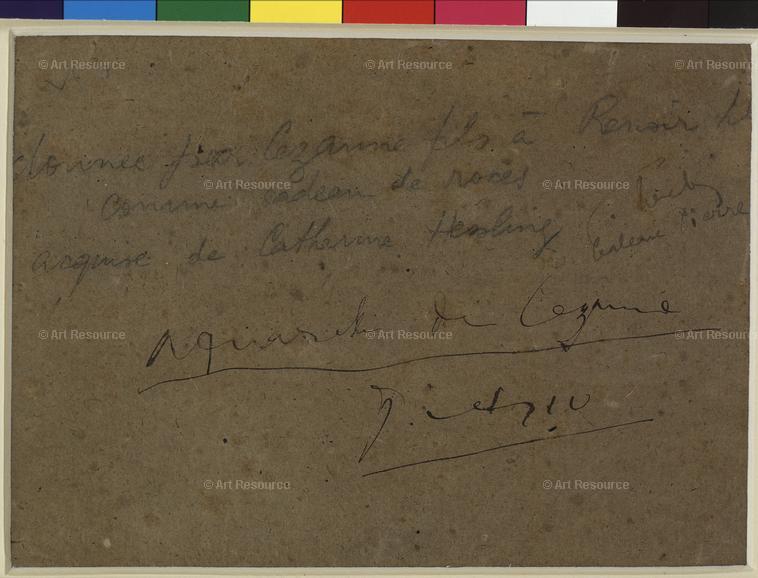 donnée par Cezanne fils à Renoir
comme cadeau de noces
acquise de Catherine Hessling
cadeau Pierre
Aquarelle de Cezanne
Picasso
© Art Resource
© Art Resource
© Art Resource
© Art Resource
© Art Resource
© Art Resource
© Art Resource
© Art Resource
© Art Resource
© Art Resource